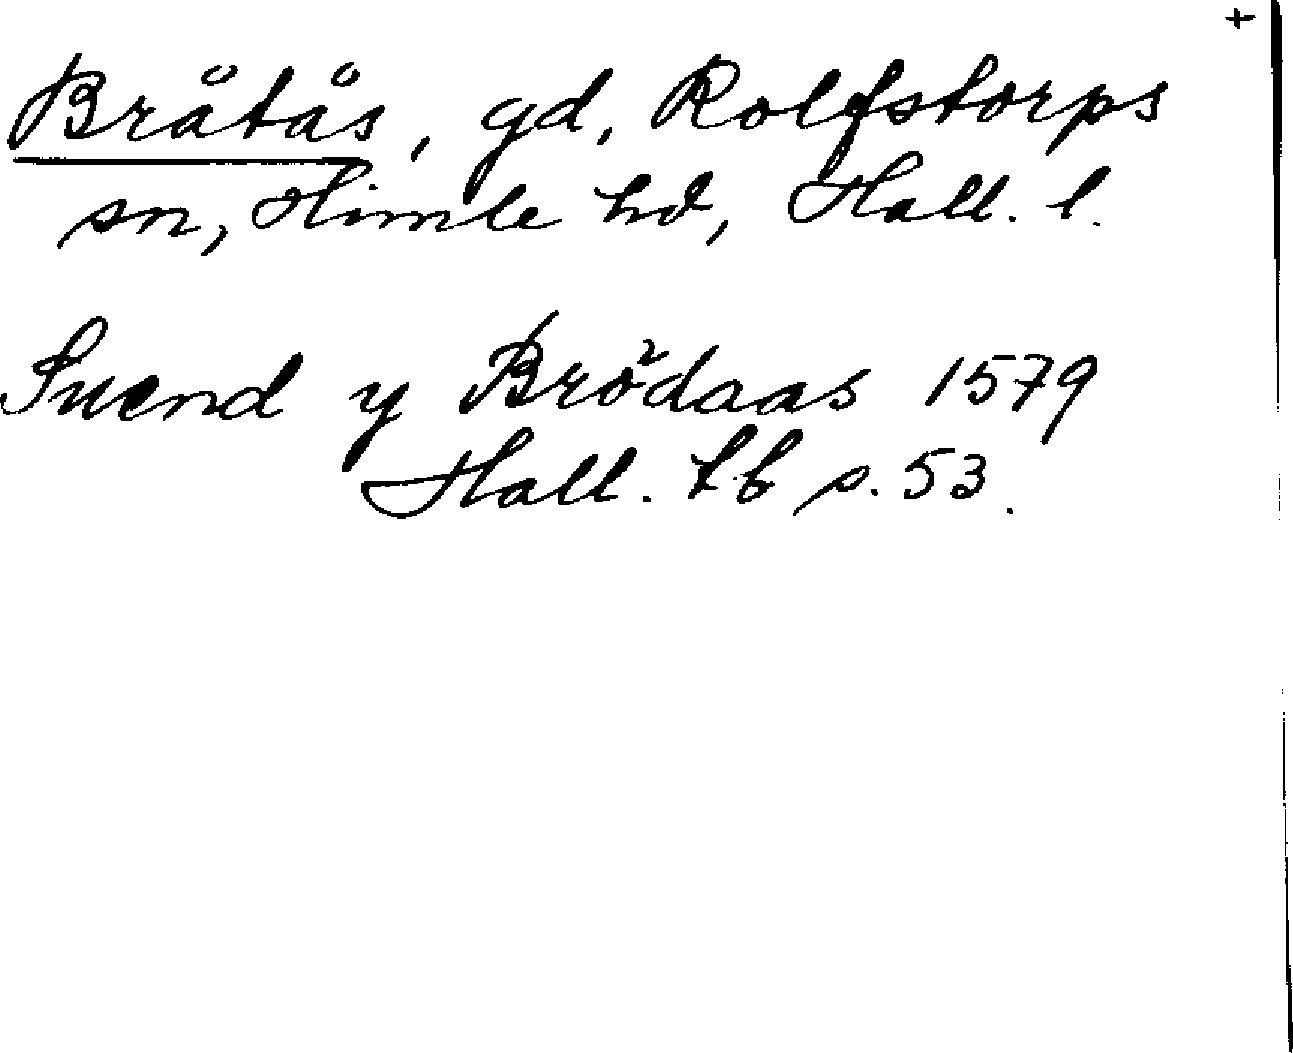 +
Bråtås, gd, Rolfstorps
sn, Himle hd, Hall. l.
Suend y Brödaas 1579
Hall. tb s. 53.